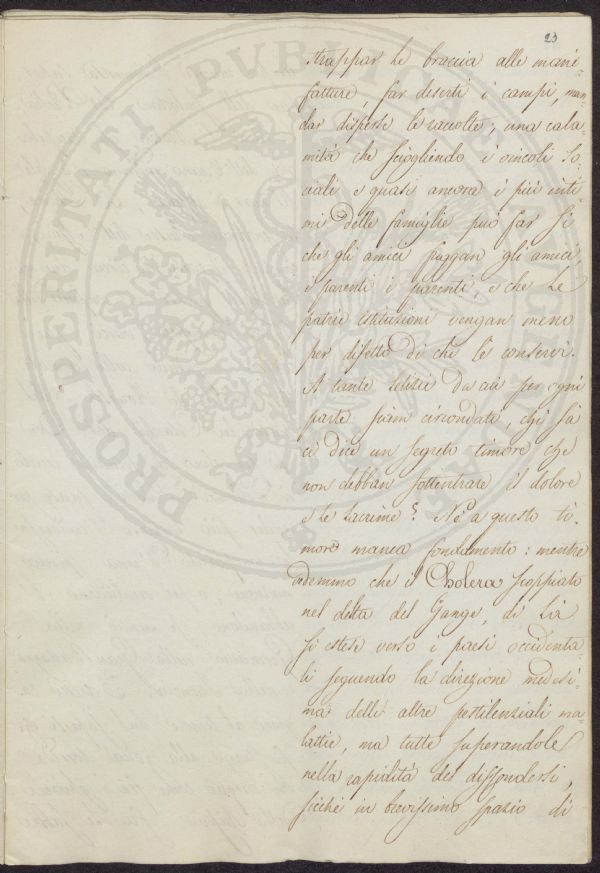 23
strappar le braccia alle mani-
fatture, far deserti i campi, man-
dar disperse le raccolte; una cala-
mità che sciogliendo i vincoli so-
ciali e quasi ancora i più inti-
mi delle famiglie può far sì
che gli amici fuggan gli amici,
i parenti i parenti, e che le
patrie istituzioni vengan meno
per difetto di chi le conservi.
A tante letizie da cui per ogni
parte siam circondati, chi sà
ci dice un segreto timore che
non debban sottentrare il dolore
e le lacrime? Nè a questo ti-
more manca fondamento: mentre
vedemmo che il Cholera scoppiato
nel delta del Gange, di là
si estese verso i paesi occidenta-
li seguendo la direzione medesi-
ma delle altre pestilenziali ma-
lattie, ma tutte superandole
nella rapidità del diffondersi,
sicchè in brevissimo spazio di
PROSPERITATI PUBLICAE